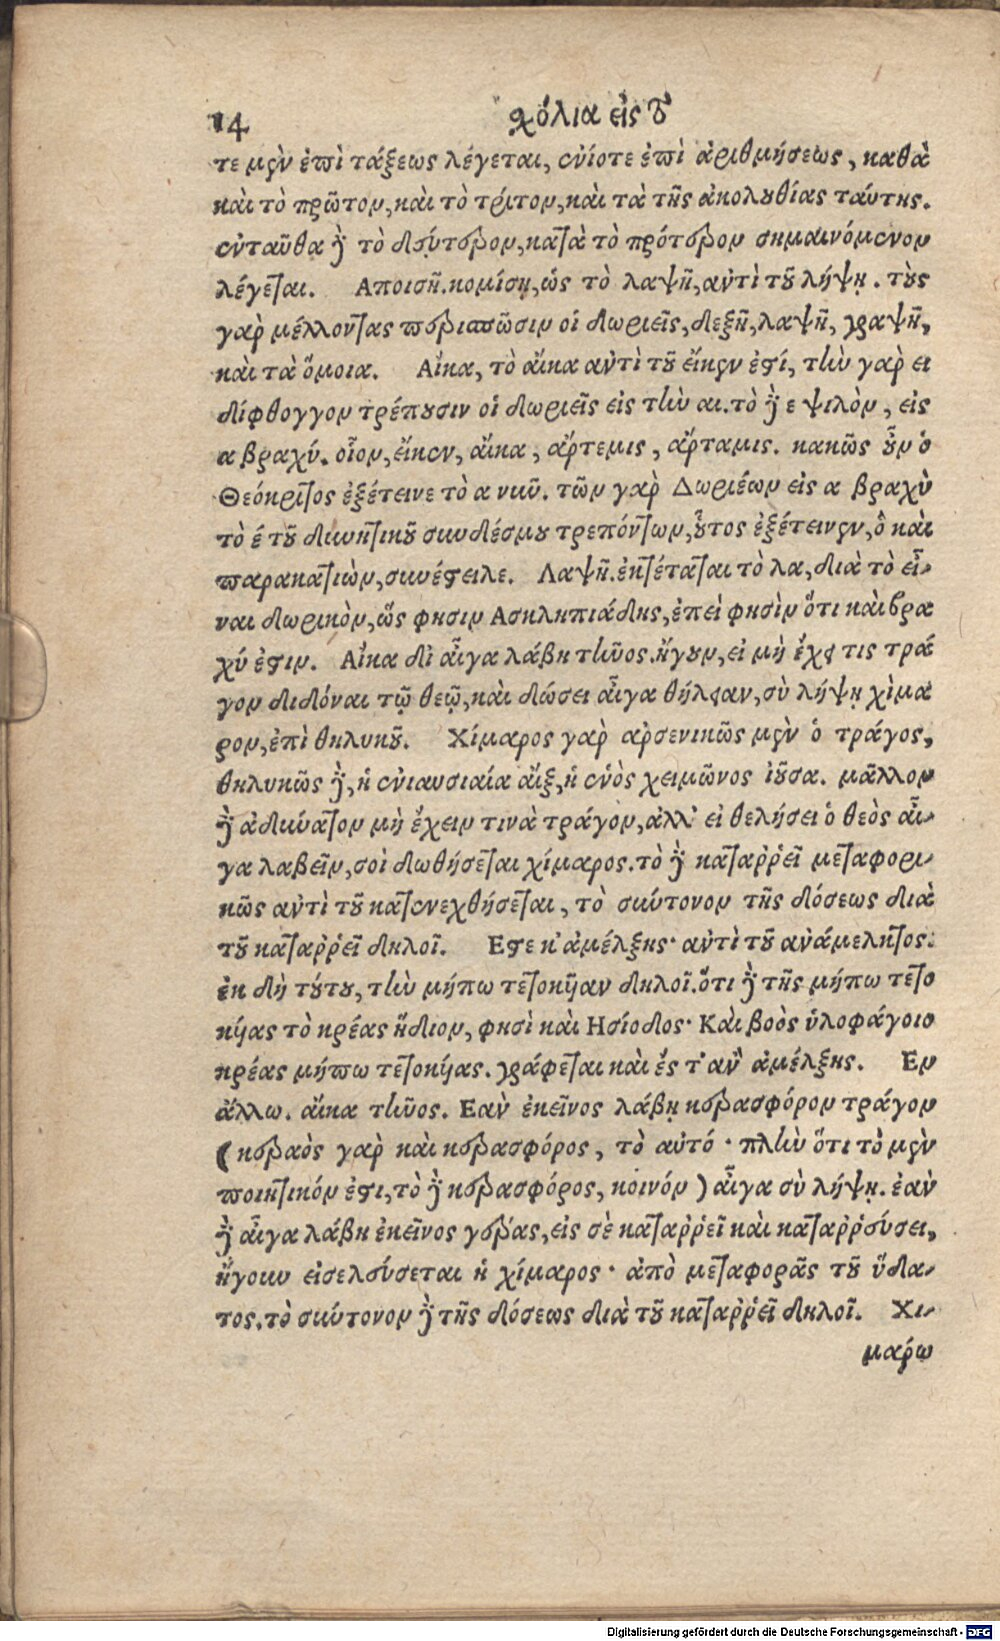 14 σχόλια εἰς τὸ
τε μὲν ἐπὶ τάξεως λέγεται, ἐνίοτε ἐπὶ ἀριθμήσεως, καθὰ
καὶ τὸ πρῶτον, καὶ τὸ τρίτον, καὶ τὰ τῆς ἀκολουθίας ταύτης.
ἐνταῦθα δὲ τὸ δεύτερον, κατὰ τὸ πρότερον σημαινόμενον
λέγεται. Αποισῆ. κομίσῃ, ὡς τὸ λαψῆ, ἀντὶ τοῦ λήψῃ. τοὺς
γὰρ μέλλοντας περισπῶσιν οἱ δωριεῖς, δεξῆ, λαψῆ, γραψῆ,
καὶ τὰ ὅμοια. Αἴκα, τὸ αἴκα ἀντὶ τοῦ εἴκεν ἐστί, τὴν γὰρ ει
δίφθογγον τρέπουσιν οἱ δωριεῖς εἰς τὴν αι. τὸ δὲ ε ψιλὸν, εἰς
α βραχύ. οἷον, εἴκεν, αἴκα, ἄρτεμις, ἄρταμις. κακῶς οὖν ὁ
Θεόκριτος ἐξέτεινε τὸ α νῦ. τῶν γὰρ Δωριέων εἰς α βραχὺ
τὸ έ τοῦ δυνητικοῦ συνδέσμου τρεπόντων, οὗτος ἐξέτεινεν, ὃ καὶ
παρακατιὼν, συνέστειλε. Λαψῆ. ἐκτέταται τὸ λα, διὰ τὸ εἶ-
ναι δωρικὸν, ὥς φησιν Ασκληπιάδης, ἐπεὶ φησὶν ὅτι καὶ βρα
χύ ἐστιν. Αἴκα δὶ αἶγα λάβη τῆνος. ἤγουν, εἰ μὴ ἔχει τις τρά
γον διδόναι τῷ θεῷ, καὶ δώσει αἶγα θήλειαν, σὺ λήψῃ χίμα
ρον, ἐπὶ θηλυκοῦ. Χίμαρος γὰρ ἀρσενικῶς μὲν ὁ τράγος,
θηλυκῶς δὲ, ἡ ἐνιαυσιαία αἴξ, ἡ ἑνὸς χειμῶνος ἰοῦσα. μᾶλλον
δὲ ἀδύνατον μὴ ἔχειν τινὰ τράγον, ἀλλ' εἰ θελήσει ὁ θεὸς αἶ-
γα λαβεῖν, σοὶ δωθήσεται χίμαρος. τὸ δὲ καταῤῥεῖ μεταφορι-
κῶς ἀντὶ τοῦ κατενεχθήσεται, τὸ σύντονον τῆς δόσεως διὰ
τοῦ καταῤῥεῖ δηλοῖ. Εστε κ' ἀμέλξης· ἀντὶ τοῦ ἀνάμελκτος.
ἐκ δὴ τούτου, τὴν μήπω τετοκῦαν δηλοῖ. ὅτι δὲ τῆς μήπω τετο
κύας τὸ κρέας ἥδιον, φησὶ καὶ Ησίοδος· Καὶ βοὸς ὑλοφάγοιο
κρέας μήπω τετοκύας. γράφεται καὶ ἔς τ' ἂν ἀμέλξης. Εν
ἄλλω. αἴκα τῆνος. Εὰν ἐκεῖνος λάβῃ κερασφόρον τράγον
(κεραὸς γὰρ καὶ κερασφόρος, τὸ αὐτό· πλὴν ὅτι τὸ μὲν
ποιητικόν ἐστι, τὸ δὲ κερασφόρος, κοινόν) αἶγα σὺ λήψῃ. ἐὰν
δὲ αἶγα λάβη ἐκεῖνος γέρας, εἰς σὲ καταῤῥεῖ καὶ καταῤῥεύσει,
ἤγουν εἰσελεύσεται ἡ χίμαρος· ἀπὸ μεταφορᾶς τοῦ ὕδα-
τος. τὸ σύντονον δὲ τῆς δόσεως διὰ τοῦ καταῤῥεῖ δηλοῖ. Χι-
μάρω
Digitalisierung gefördert durch die Deutsche Forschungsgemeinschaft - DFG